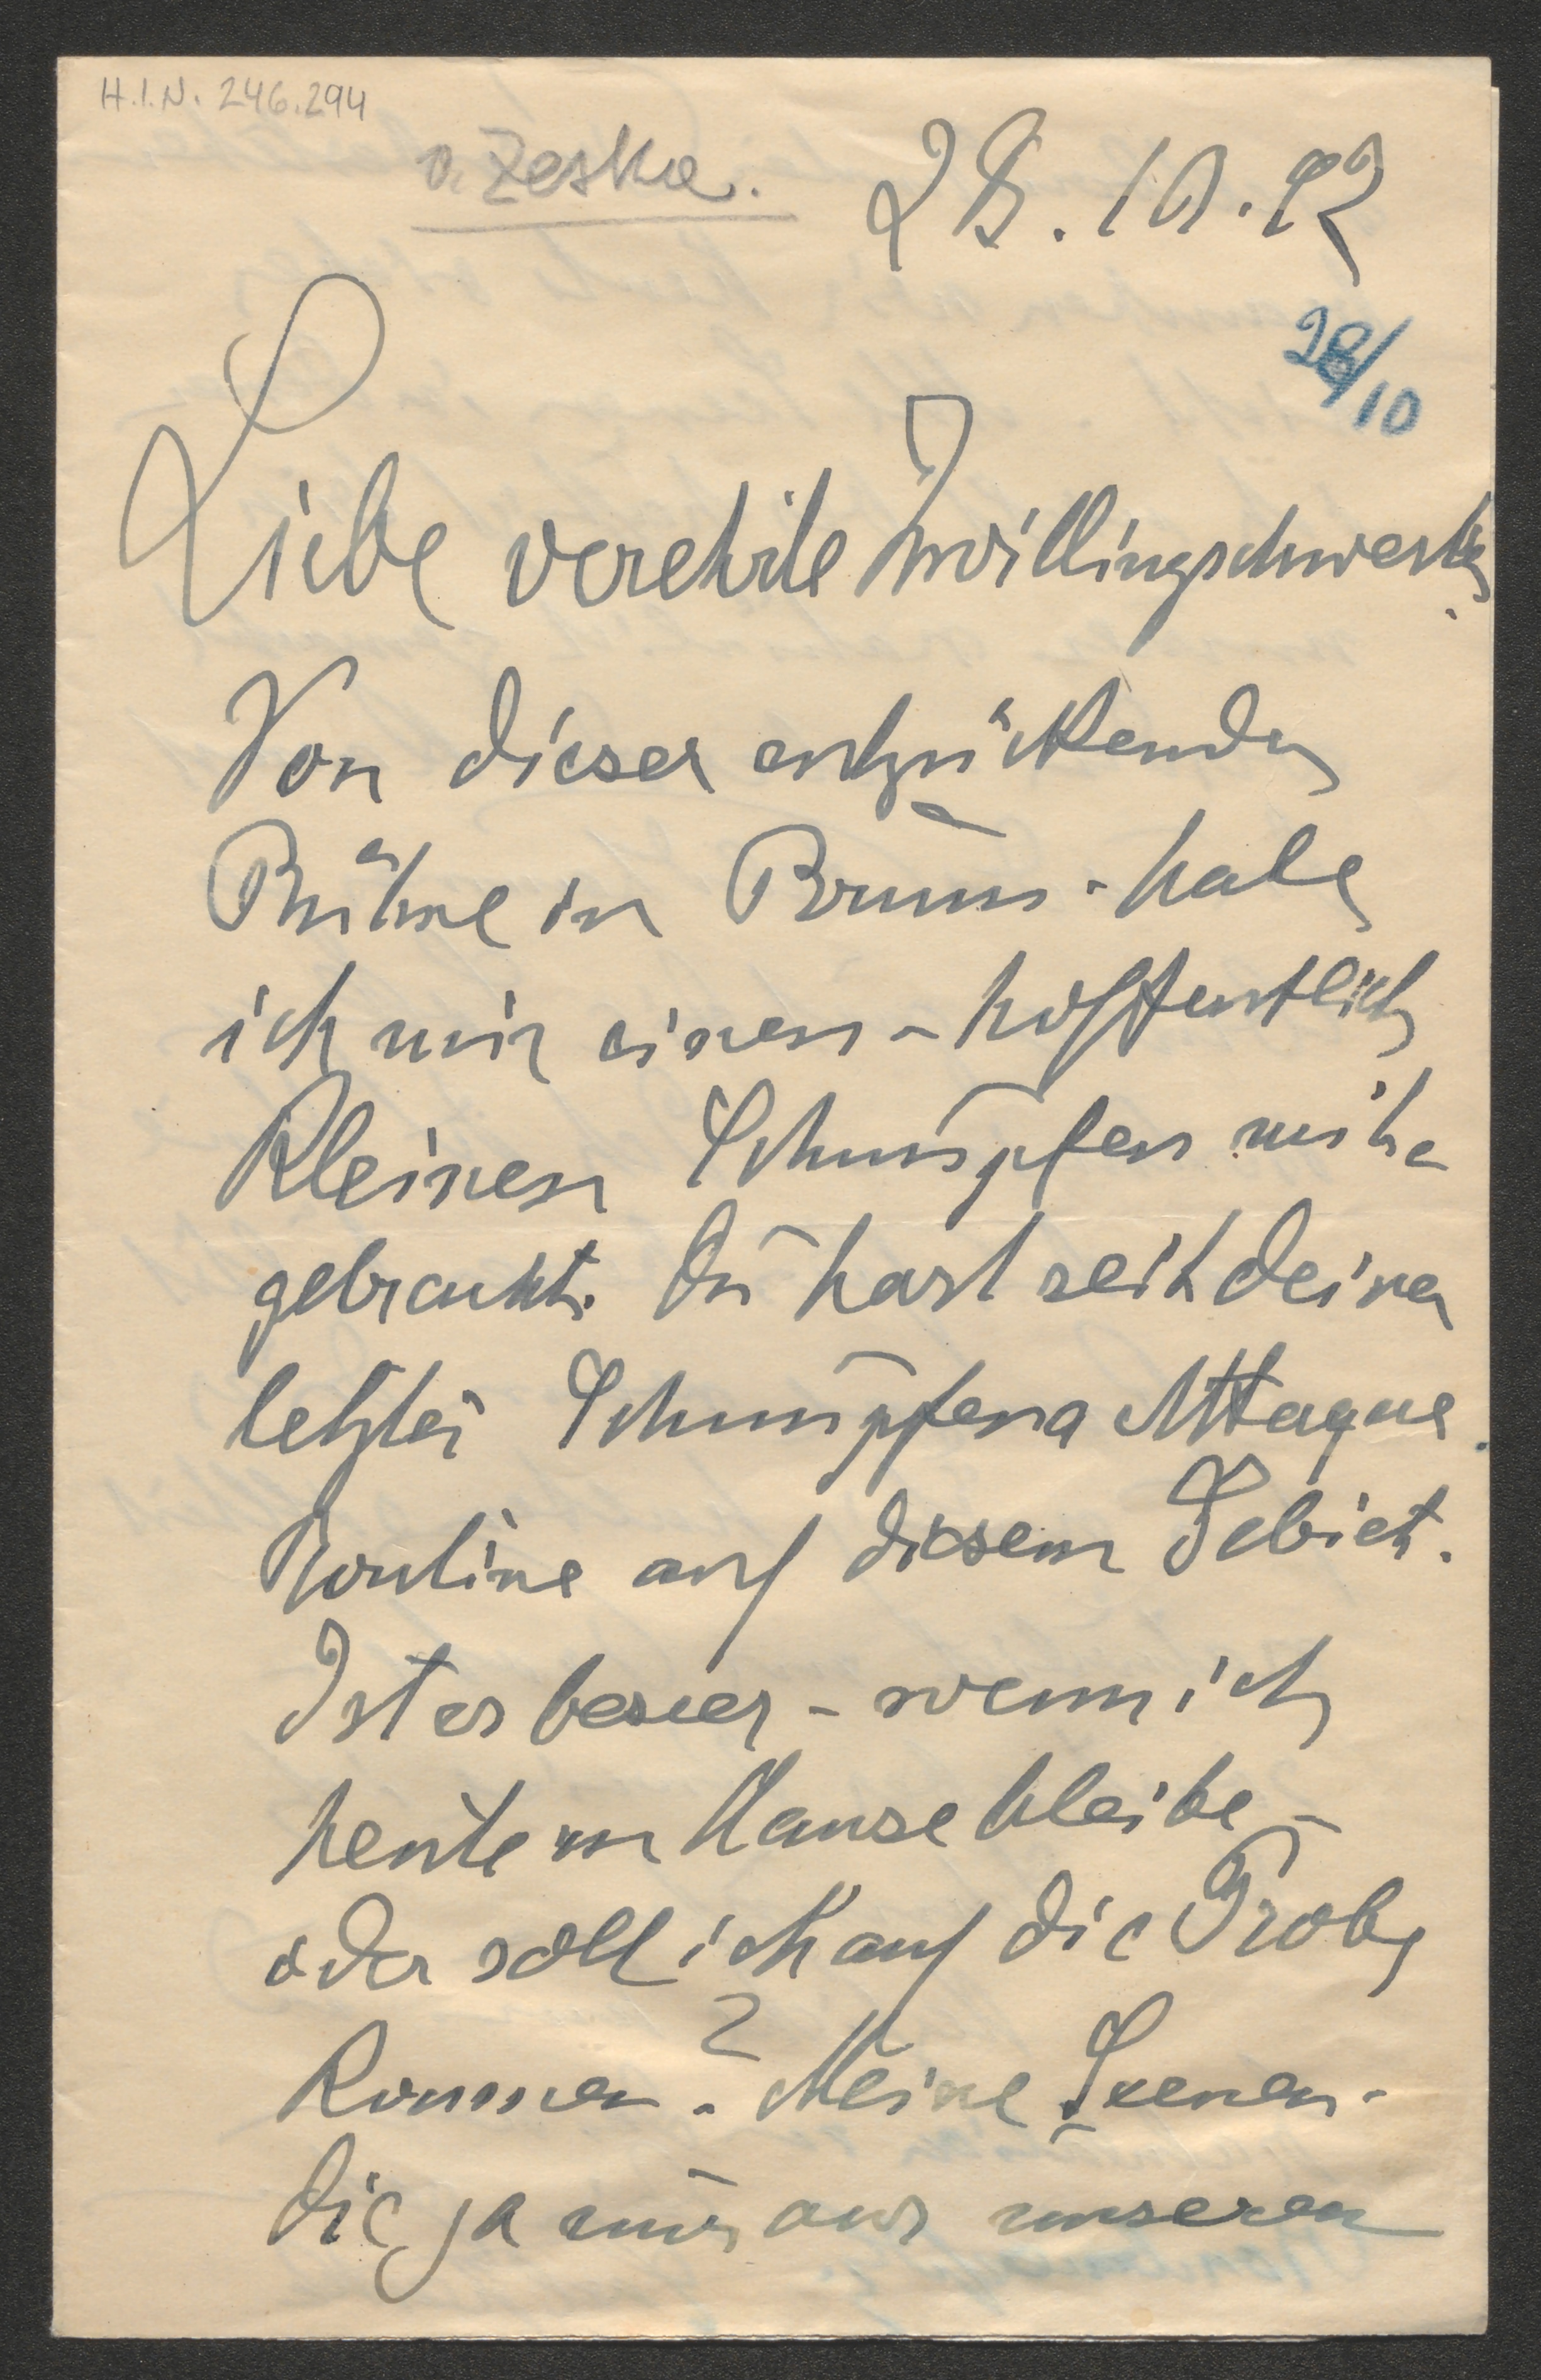 H.I.N. 246.294
v. Zeska.
28.10.92
28/10
Liebe verehrte Zwillingschwester
Von dieser entzückenden
Bühne in Brünn - habe
ich mir einen - hoffentlich
kleinen Schnupfen mitge
gebracht. Du hast seit deiner
letzten Schnupfena Attaque
Routine auf diesem Gebiet.
Ist es besser - wenn ich
heute im Hause bleibe -
oder soll ich auf die Probe
kommen? Meine Scenen -
die ja nur aus unseren